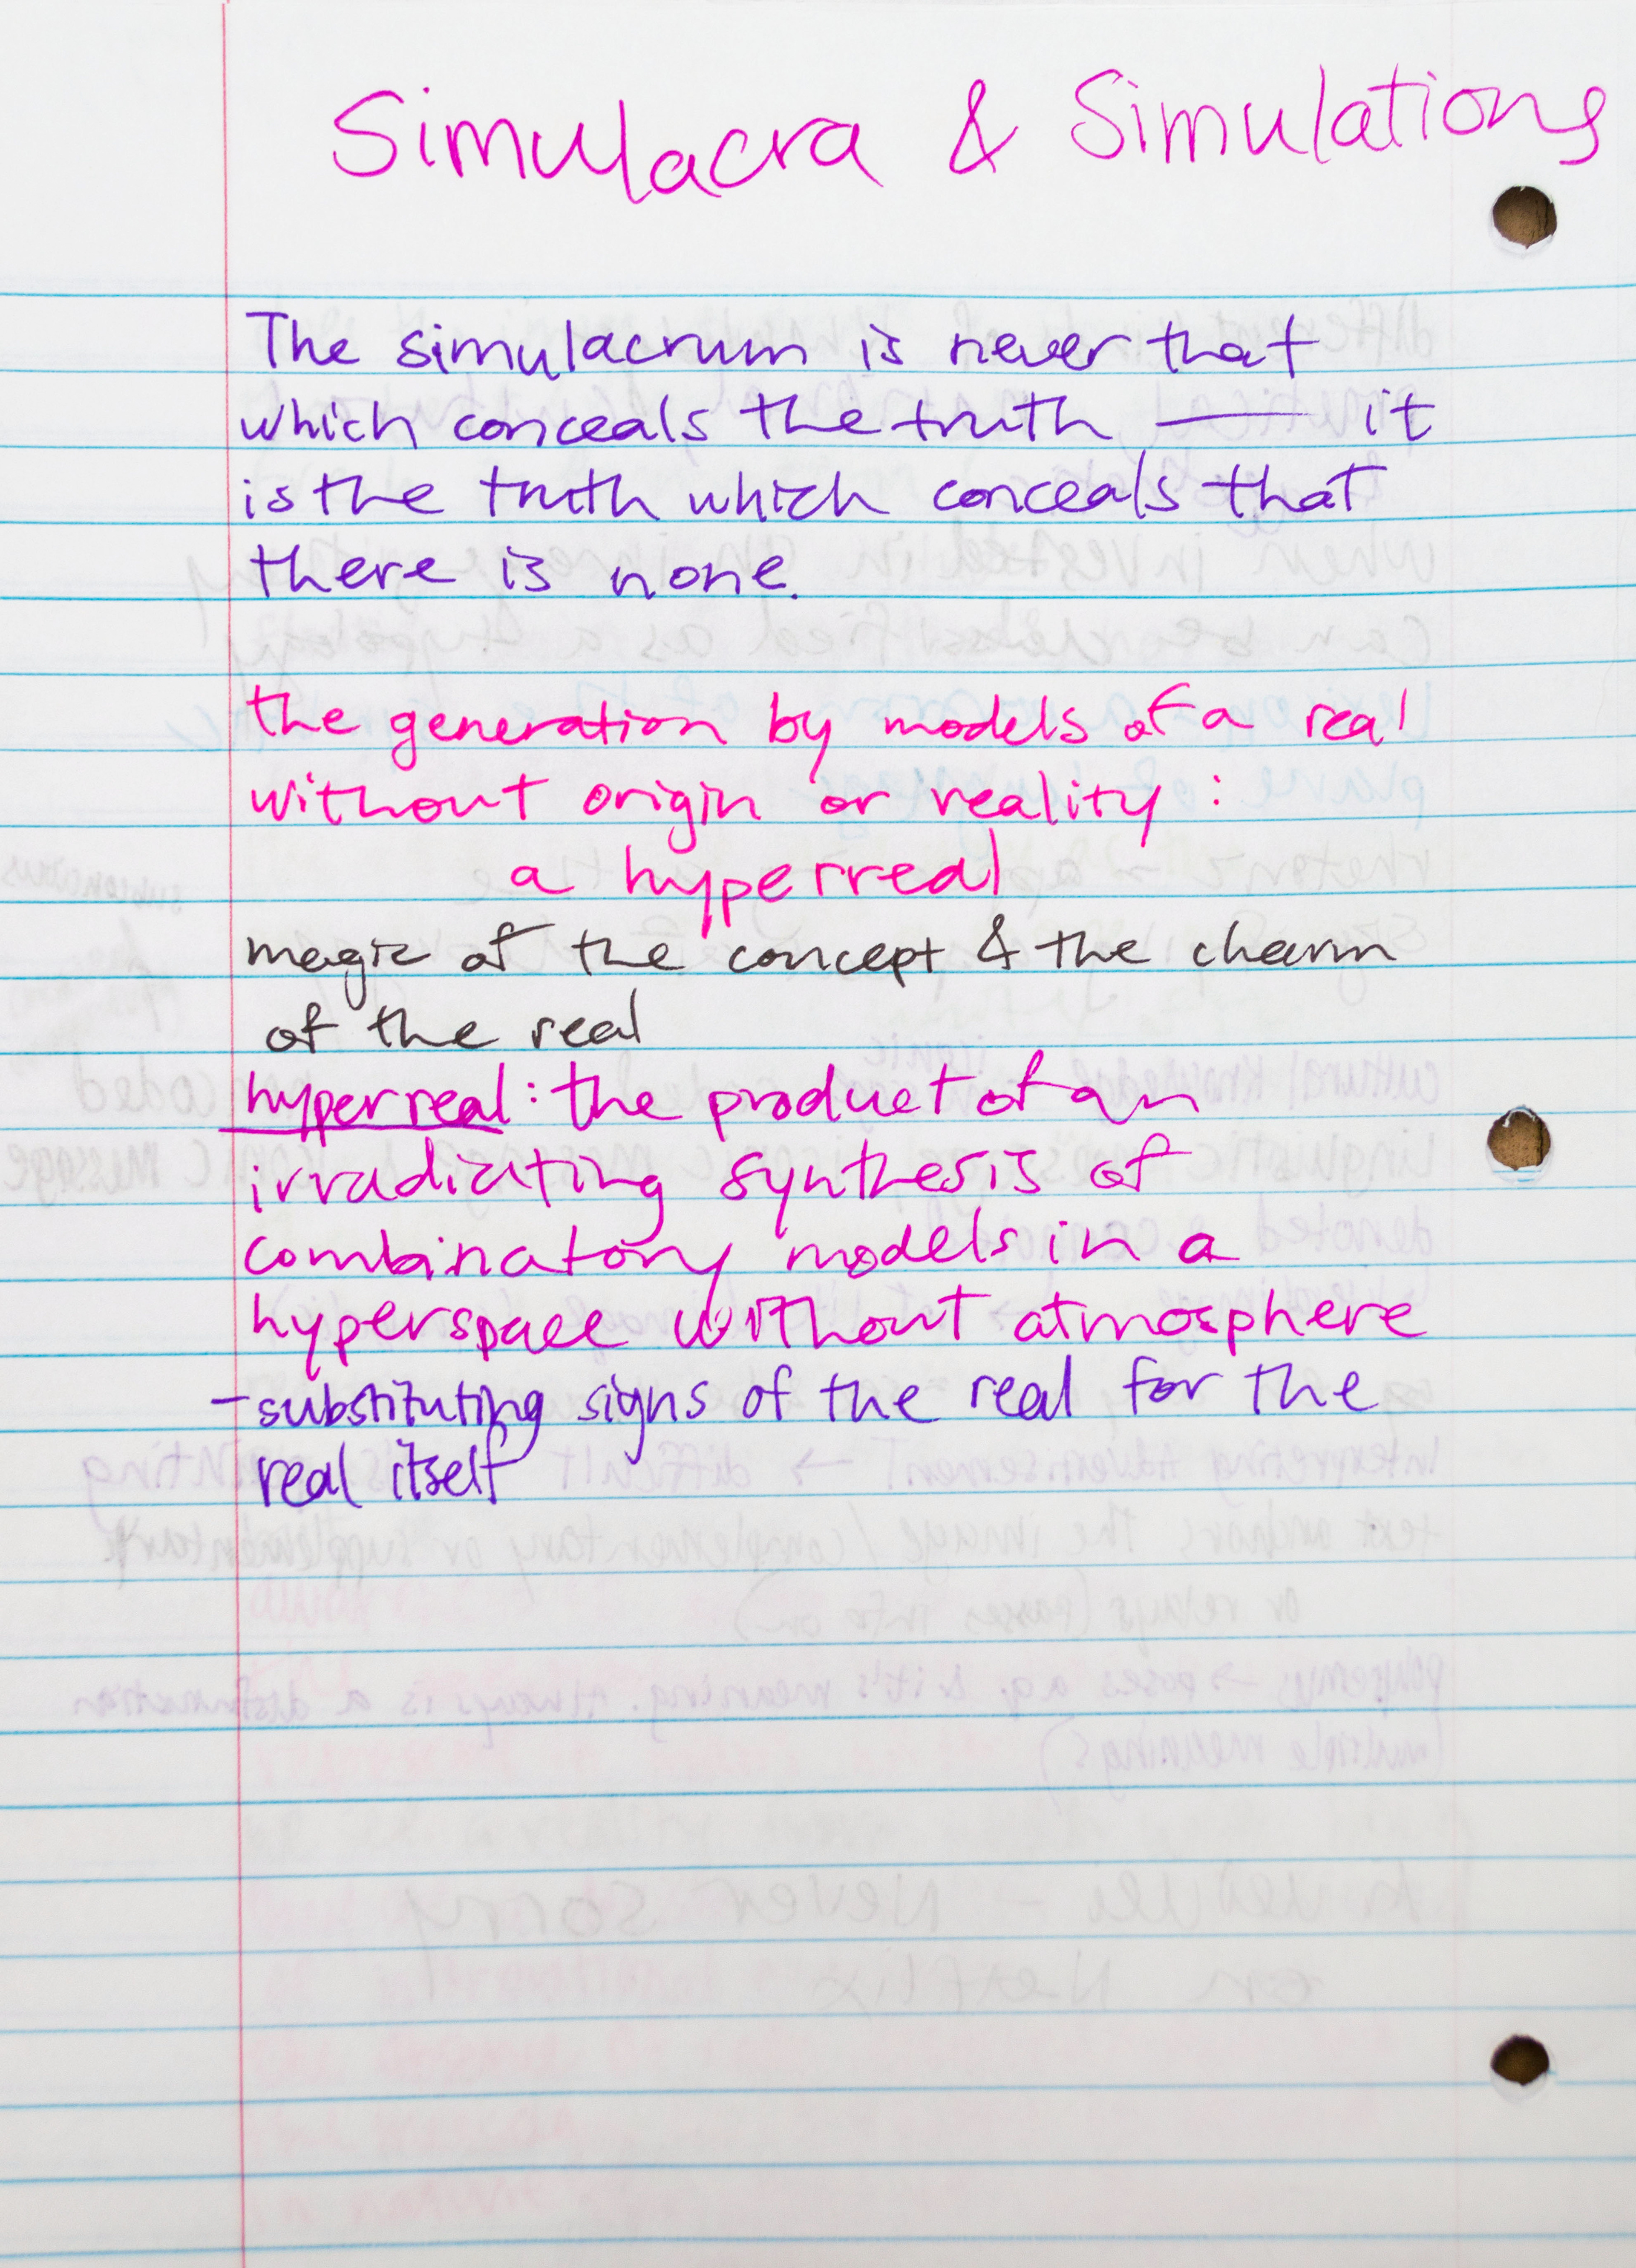 Simulacra & Simulations
The simulacrum is never that
which conceals the truth — it
is the truth which conceals that
there is none.
the generation by models of a real
without origin or reality:
a hyperreal
magic of the concept & the charm
of the real
hyperreal: the product of an
irradiating synthesis of
combinatory models in a
hyperspace without atmosphere
- substituting signs of the real for the
real itself